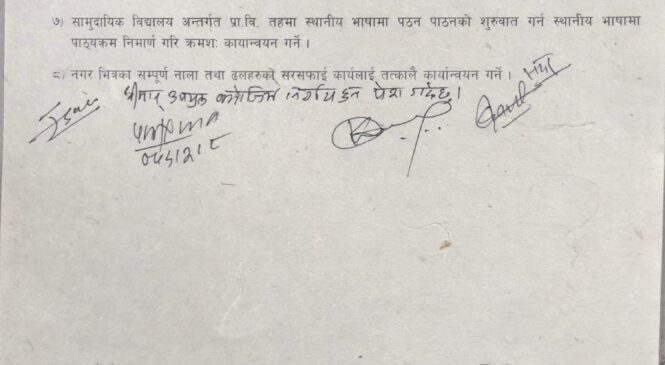 ७) सामुदायिक विद्यालय अन्तर्गत प्रा.वि. तहमा स्थानीय भाषामा पठन पाठनको शुरुवात गर्न स्थानीय भाषामा
पाठ्यक्रम निमार्ण गरि क्रमशः कायान्वयन गर्ने ।
८) नगर भित्रका सम्पूर्ण नाला तथा ढलहरुको सरसफाई कार्यलाई तत्कालै कार्यान्वयन गर्ने ।
श्रीमान् उपयुक्त बमोजिम निर्णय हुन पेश गर्दछु ।